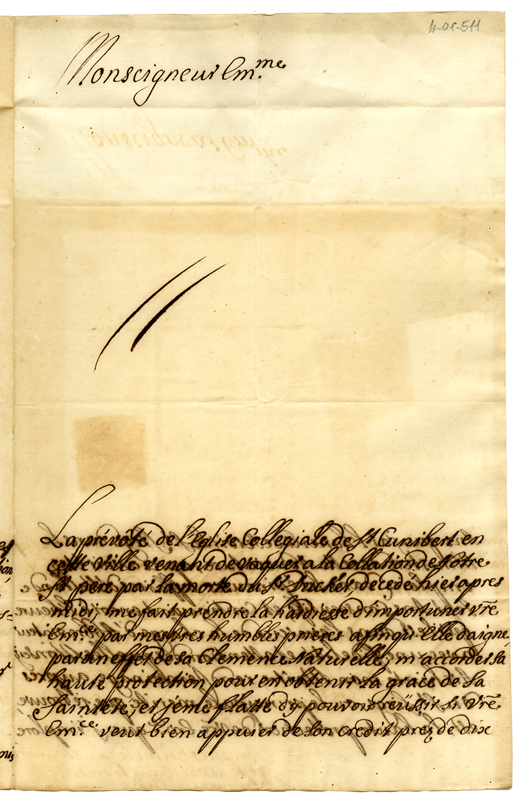 4-01-511
Monseigneur Em.me
La prévôté de l'Eglise Collegiale de St Cunibert en
cette ville venant de vaquer a la Collation de Notre
st pere par la mort du Sr decedé hier apres
midi, me fait prendre la hardiesse d'importuner Vre
Em.ce par mes tres humbles prieres afin qu'Elle daigne
par un effet de sa Clemence Naturelle, m'accorder sa
haute protection pour en obtenir la grace de sa
Sainteté, et je me flatte d'y pouvoir reüssir si Vre
Em.ce veut bien appuier de son credit prez de dix